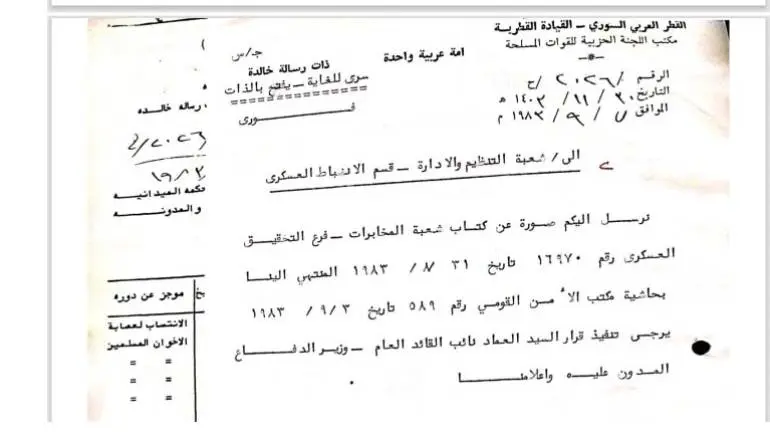 القطر العربي السوري – القيادة القطرية
مكتب اللجنة الحزبية للقوات المسلحة
امة عربية واحدة
ج/س
ذات رسالة خالدة
سرى للغاية – يفتح بالذات
فــورى
الرقم / ٢٠٢٦ / ح
التاريخ ٣٠ / ١١ / ١٤٠٣ هـ
الموافق ٧ / ٩ / ١٩٨٣ م
الى / شعبة التنظيم والادارة – قسم الانضباط العسكرى
نرسل اليكم صورة عن كتاب شعبة المخابرات – فرع التحقيق
العسكرى رقم ١٦٩٧٠ تاريخ ٣١ / ٨ / ١٩٨٣ المنتهي الينا
بحاشية مكتب الأمن القومي رقم ٥٨٩ تاريخ ٣ / ٩ / ١٩٨٣
يرجى تنفيذ قرار السيد العماد نائب القائد العام – وزير الدفــاع
المدون عليه واعلامنــا
رسالة خالده
٢٠٢٦/
والمدونه
موجز عن دوره
الانتساب لعصابة
الاخوان المسلمين
= =
= =
= =